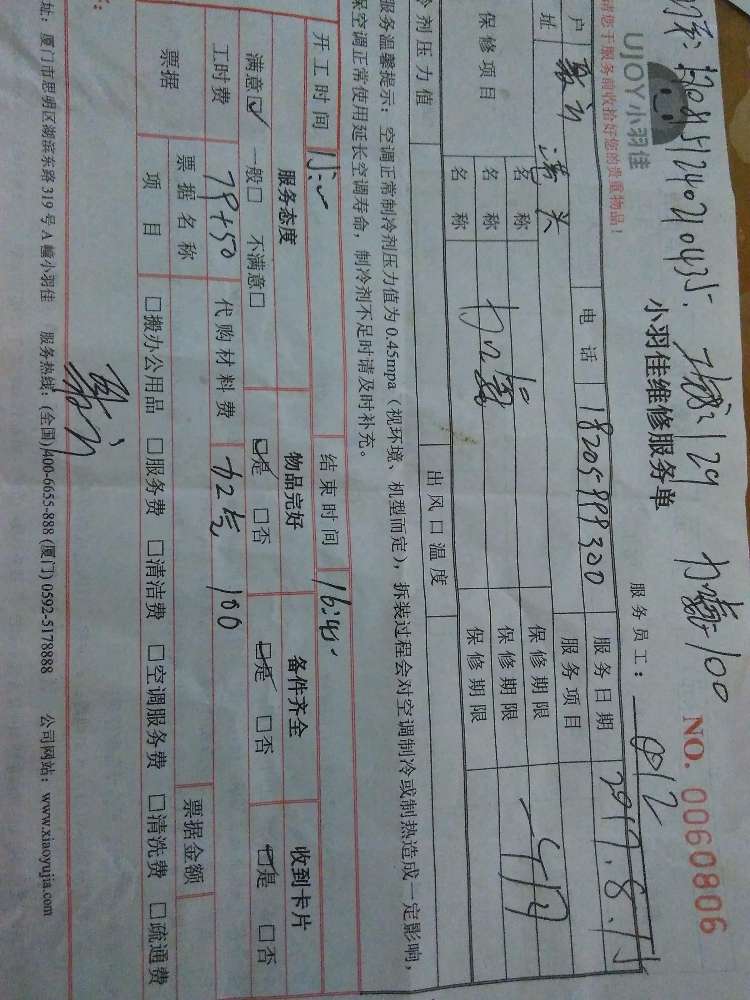 1708151240210435. 129 100
UJOY小羽佳
请您于服务前收拾好您的贵重物品！
小羽佳维修服务单
NO. 0060806
服务员工：
户 电话 18205999320 服务日期 2017.8.15
址 服务项目
保修项目 名称 保修期限
名称 保修期限
名称 保修期限
冷剂压力值 出风口温度
服务温馨提示：空调正常制冷剂压力值为0.45mpa（视环境、机型而定），拆装过程会对空调制冷或制热造成一定影响，
保空调正常使用延长空调寿命，制冷剂不足时请及时补充。
开工时间 结束时间 16:45
服务态度 物品完好 备件齐全 收到卡片
满意☑ 一般□ 不满意□ ☑是 □否 ☑是 □否 ☑是 □否
工时费 79+50 代购材料费 100
票据 票据名称 票据金额
项目 □搬办公用品 □服务费 □清洁费 □空调服务费 □清洗费 □疏通费
址：厦门市思明区湖滨东路319号A幢小羽佳 服务热线：(全国)400-6655-888 (厦门) 0592-5178888 公司网站：www.xiaoyujia.com